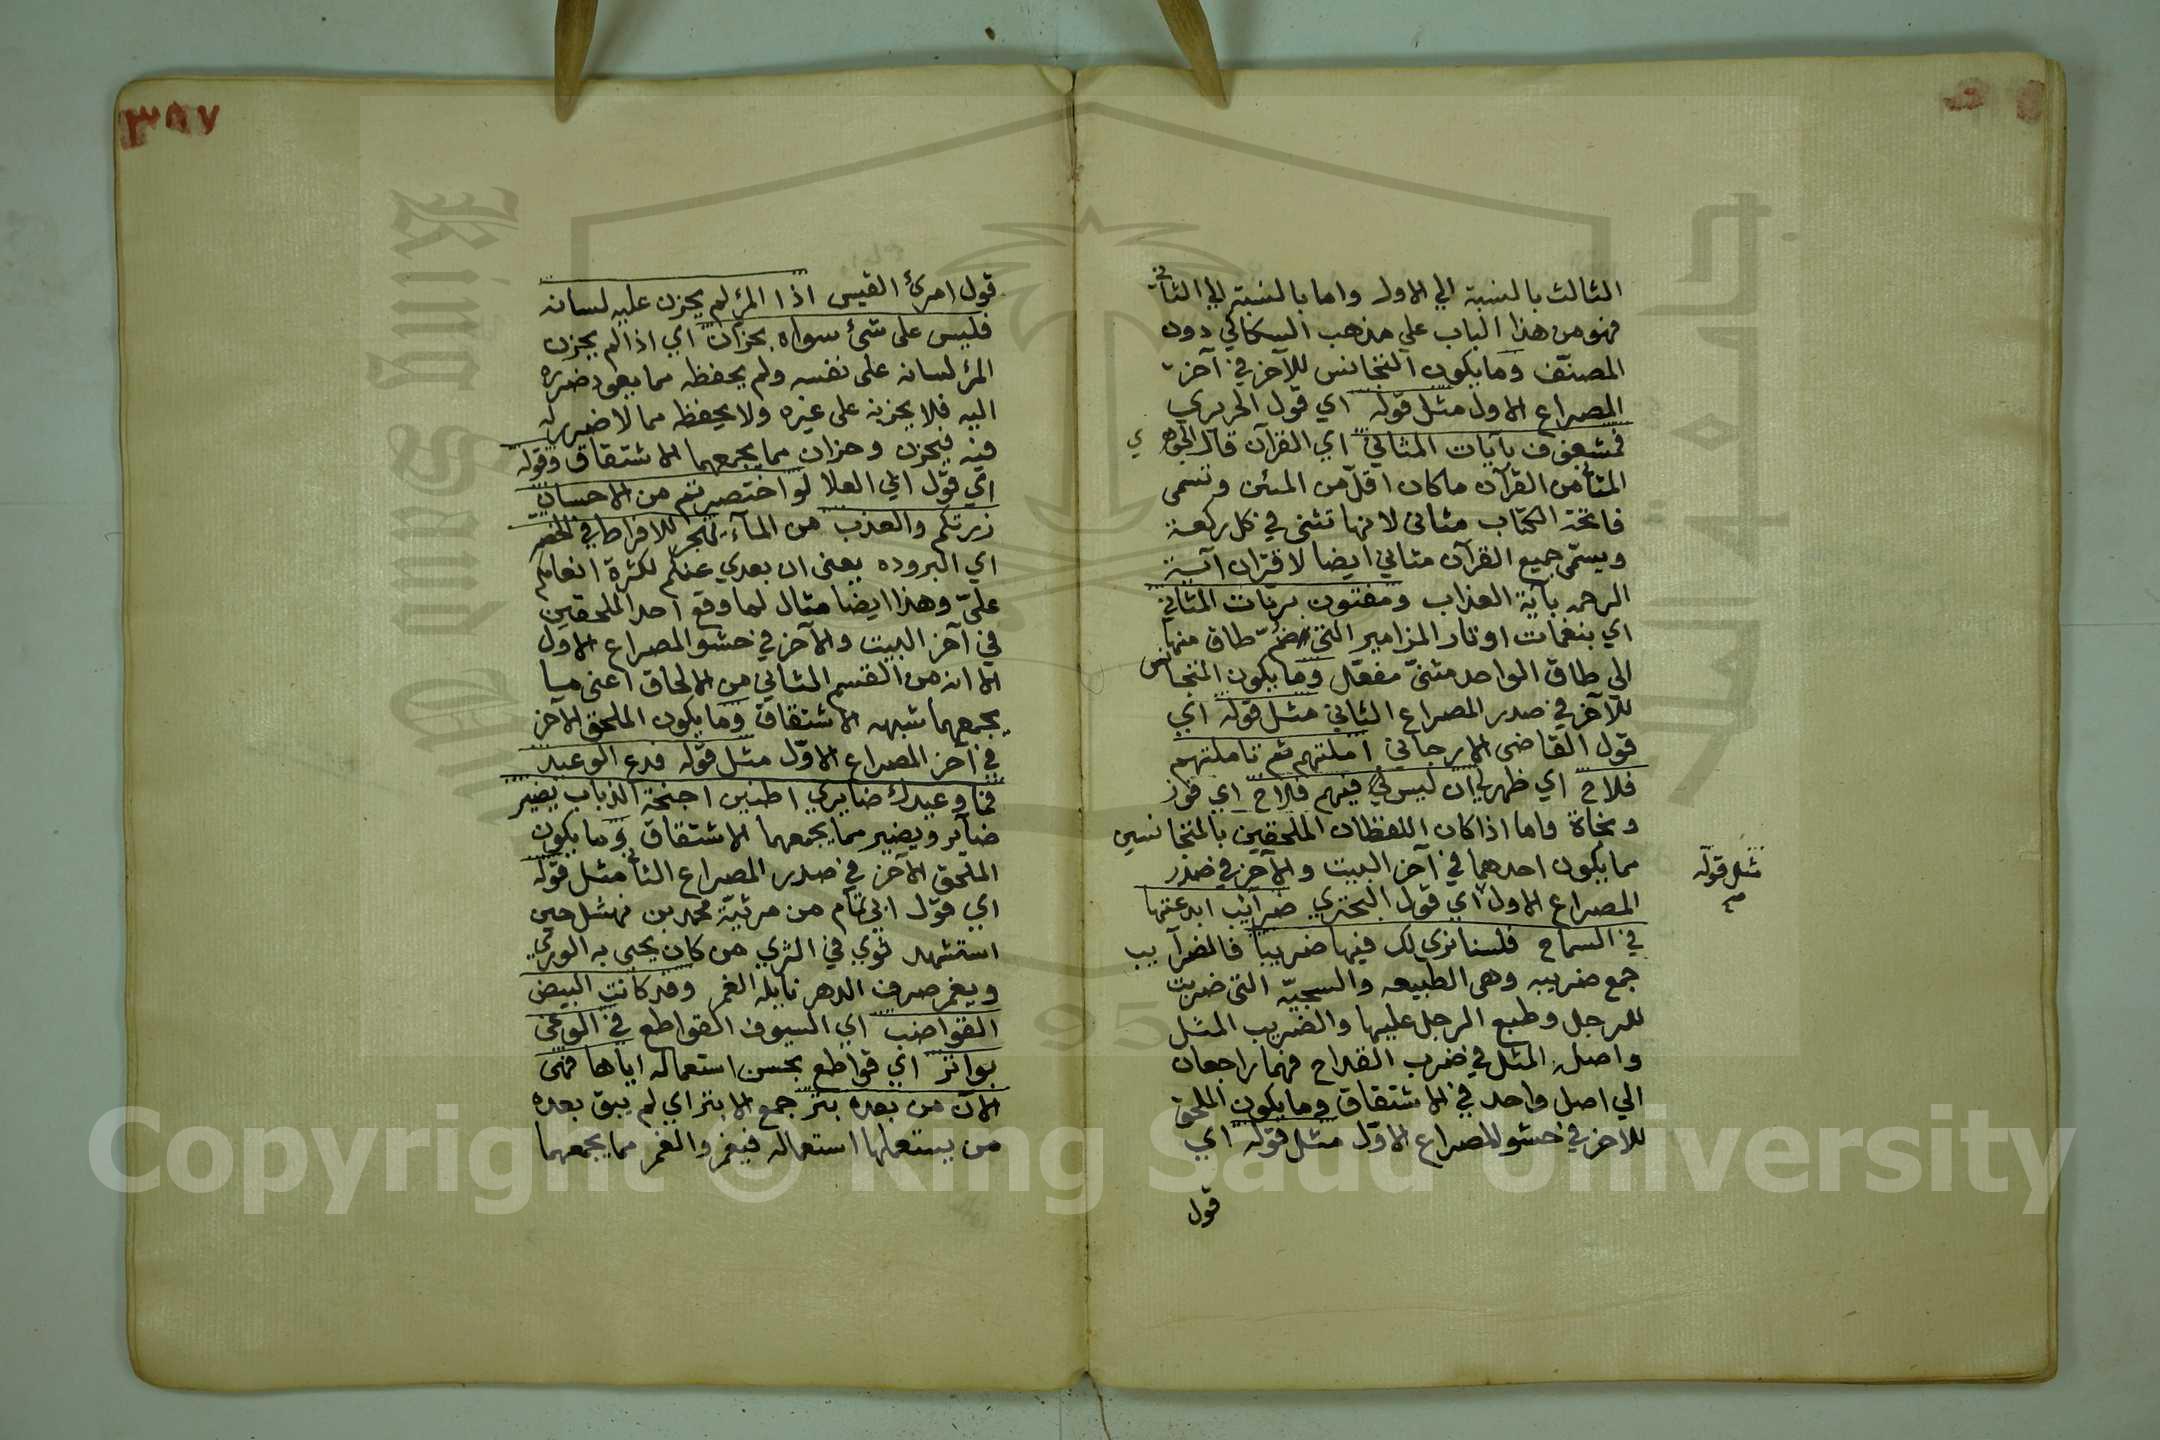 الثالث بالنسبة الي الاول واما بالنسبة الي الثاني
فهو من هذا الباب علي مذهب السكاكي دون
المصنف وما يكون المتجانس للآخر في آخر
المصراع الاول مثل قوله اي قول الحريري
فمشغوف بآيات المثاني اي القرآن قال الجوهري
المثاني من القرآن ما كان اقل من المئين وتسمى
فاتحة الكتاب مثاني لانها تثنى في كل ركعة
ويسمّى جميع القرآن مثاني ايضا لاقتران آية
الرحمه بآية العذاب ومفتون برنات المثاني
اي بنغمات اوتار المزامير التي ضمّ طاق منها
الي طاق الواحد مثنىّ مفعل وما يكون المتجانس
للآخر في صدر المصراع الثاني مثل قوله اي
قول القاضي الارجاني املتهم ثم تاملتهم
فلاح اي ظهر لي ان ليس لي فيهم فلاح اي فوز
ونجاة واما اذا كان اللفظان الملحقين بالمتجانسين
مما يكون احدهما في آخر البيت والآخر في صدر
المصراع الاول اي قول البحتري ضرائب ابدعتها
مثل قوله
صح
في السماح فلسنا نري لك فيها ضريبا فالضرآيب
جمع ضريبه وهي الطبيعه والسجيّه التي ضربت
للرجل وطبع الرجل عليها والضريب المثل
واصل المثل في ضرب القداح فهما راجعان
الي اصل واحد في الاشتقاق وما يكون الملحق
للآخر في حشو المصراع الاوّل مثل قوله اي
قول
٣٨٧
قول امرئ القيس اذا المرء لم يخزن عليه لسانه
فليس على شئ سواه بخزان اي اذا لم يخزن
المرء لسانه على نفسه ولم يحفظه مما يعود ضرره
اليه فلا يخزنه على غيره ولا يحفظه مما لا ضرر له
فيه فيخزن وخزان مما يجمعهما الاشتقاق وقوله
اي قول ابي العلا لو اختصرتم من الاحسان
زرتكم والعذب من المآء يهجر للافراط في الخصر
اي البروده يعني ان بعدي عنكم لكثرة انعامكم
عليّ وهذا ايضا مثال لما وقع احد الملحقين
في آخر البيت والآخر في حشو المصراع الاول
الا انه من القسم الثاني من الالحاق اعني ما
يجمعهما شبهه الاشتقاق وما يكون الملحق الآخر
في آخر المصراع الاوّل مثل قوله فدع الوعيد
فما وعيدك ضايري اطنين اجنحة الذباب يضير
ضآير ويضير مما يجمعهما الاشتقاق وما يكون
الملحق الآخر في صدر المصراع الثاني مثل قوله
اي قول ابي تمام من مرثيّة محمد بن نهشل حين
استشهد ثوي في الثري من كان يحيى به الوري
ويغمر صرف الدهر نايله الغمر وقد كانت البيض
القواضب اي السيوف القواطع في الوغى
بواتر اي قواطع بحسن استعماله اياها فهي
الآن من بعده بتر جمع الابتر اي لم يبق بعده
من يستعملها استعماله فيغمر والغمر مما يجمعهما
Copyright © King Saud University